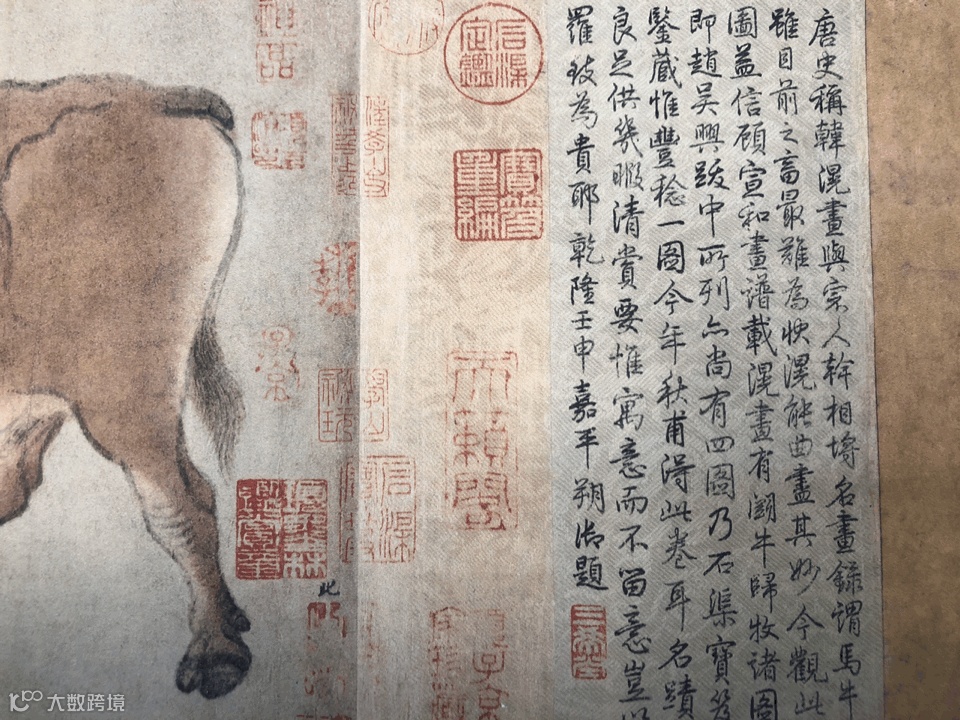 唐史稱韓滉畫與宗人幹相埒名畫錄謂馬牛
雖目前之畜最難為狀滉能曲盡其妙今觀此
圖益信顧宣和畫譜載滉畫有鬭牛歸牧諸圖
即趙吳興跋中所列亦尚有四圖乃石渠寶笈
鑒藏惟豐稔一圖今年秋甫得此卷耳名蹟
良足供幾暇清賞要惟寓意而不留意豈以
羅致為貴耶乾隆壬申嘉平朔御題
石渠定鑑
寶笈重編
天籟閣
神品
此
大数跨境